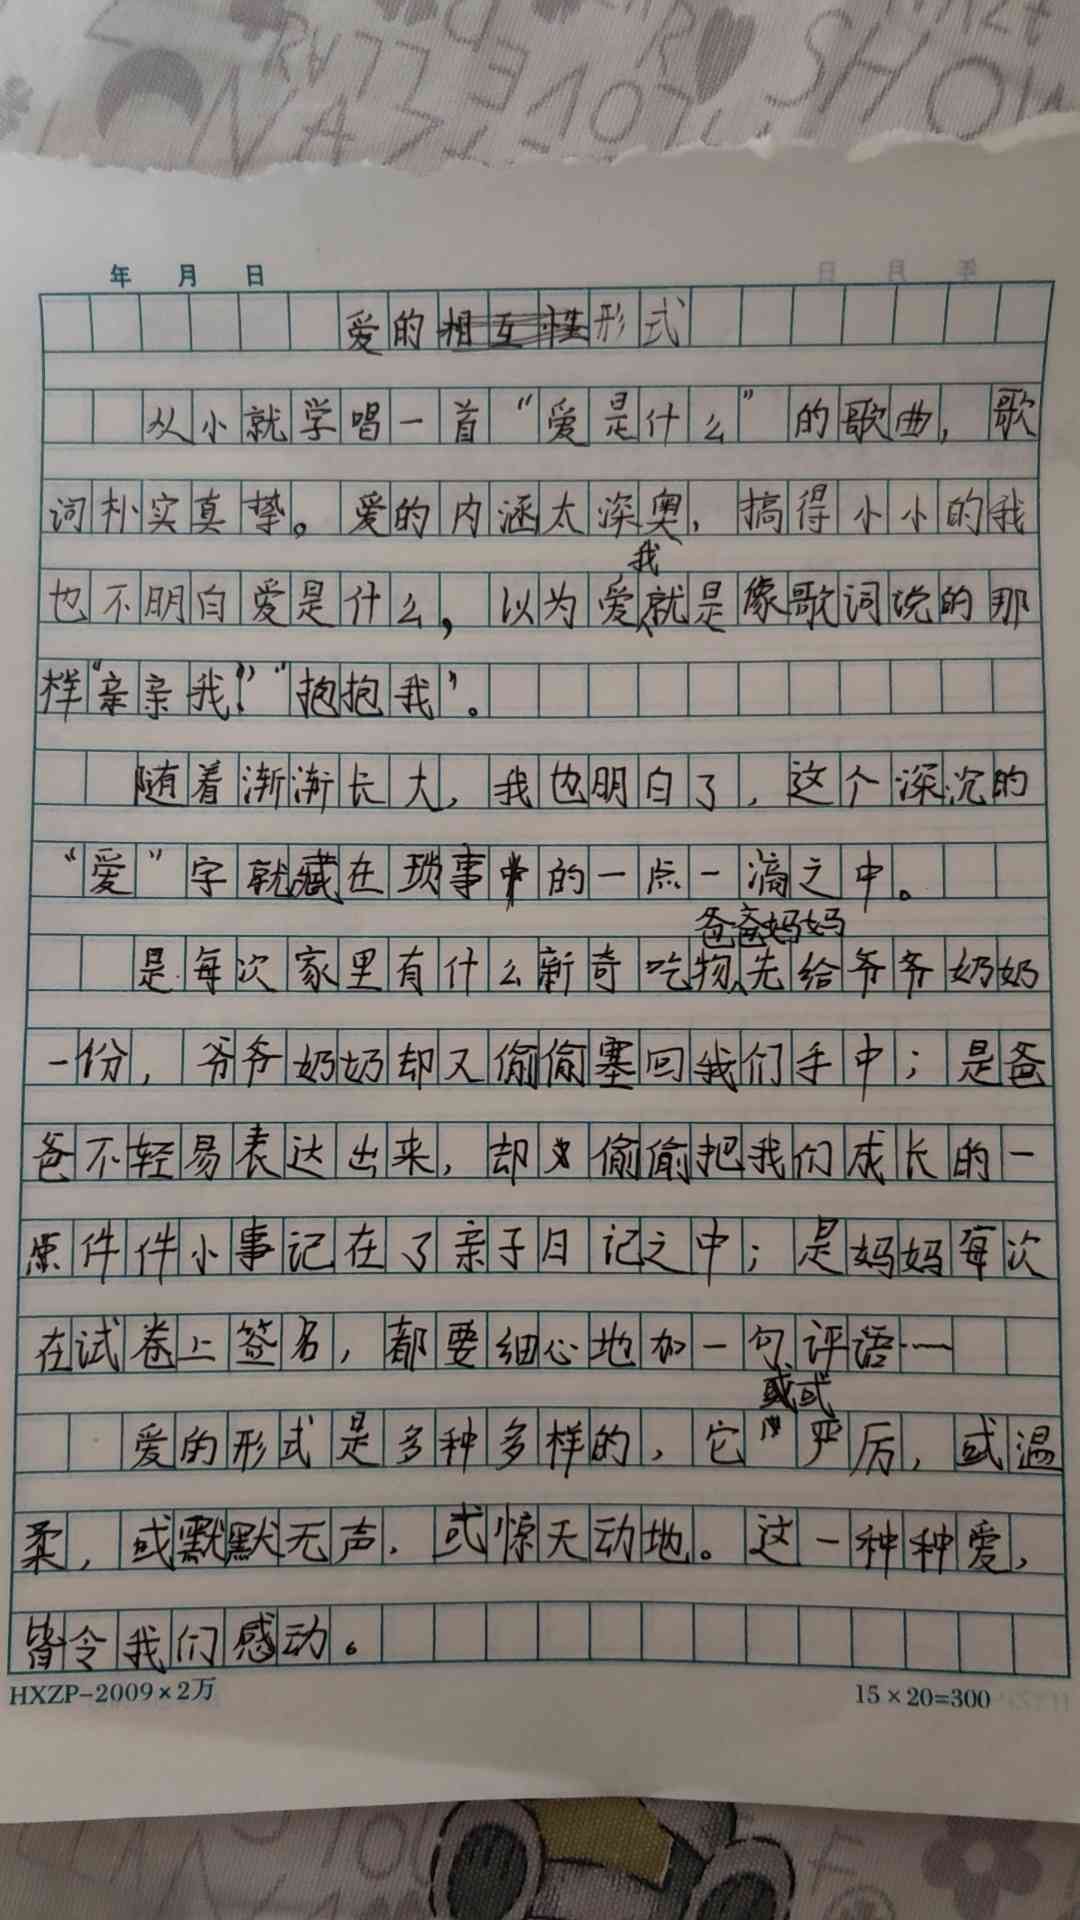 年 月 日
爱的形式
从小就学唱一首“爱是什么”的歌曲，歌
词朴实真挚。爱的内涵太深奥，搞得小小的我
也不明白爱是什么，以为爱我就是像歌词说的那
样“亲亲我！”“抱抱我”。
随着渐渐长大，我也明白了，这个深沉的
“爱”字就藏在琐事中的一点一滴之中。
是每次家里有什么新奇吃物爸爸妈妈先给爷爷奶奶
一份，爷爷奶奶却又偷偷塞回我们手中；是爸
爸不轻易表达出来，却又偷偷把我们成长的一
点件件小事记在了亲子日记之中；是妈妈每次
在试卷上签名，都要细心地加一句评语……
爱的形式是多种多样的，它或严厉，或温
柔，或默默无声，或惊天动地。这一种种爱，
皆令我们感动。
HXZP-2009×2万 15×20=300